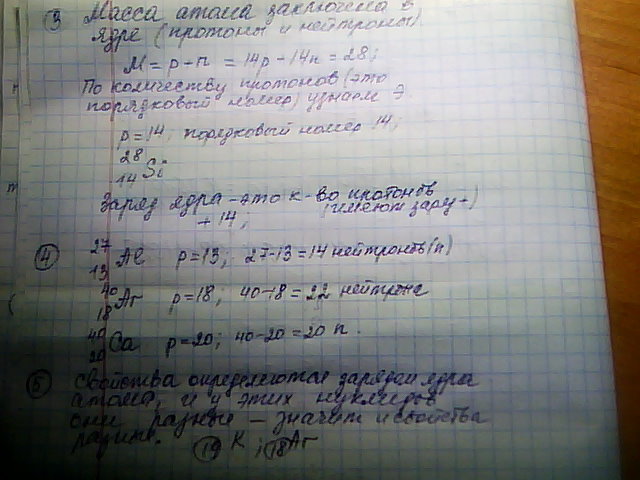 ③ Масса атома заключена в
ядре (протоны и нейтроны)
M = p - n = 14p - 14n = 28;
По количеству протонов (это
порядковый номер) узнаем Э.
p = 14; порядковый номер 14;
28
14 Si
Заряд ядра - это к-во протонов
+ 14; (имеют заряд +)
④ 27
13 Al p = 13; 27-13 = 14 нейтронов (n)
40
18 Ar p = 18; 40-18 = 22 нейтрона
40
20 Ca p = 20; 40-20 = 20 n.
⑤ Свойства определяются зарядом ядра
атома, и у этих нуклидов
они разные - значит и свойства
разные. ⑲ K ; ⑱ Ar